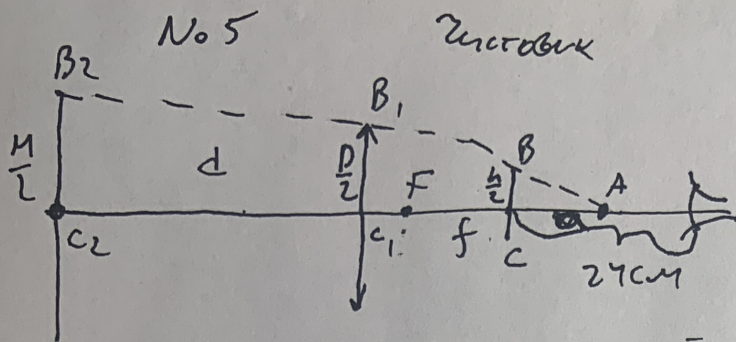 No 5 Чистовик
B2
B1
B
M/2
d
D/2
F
h/2
A
C2
C1
f
C
24см